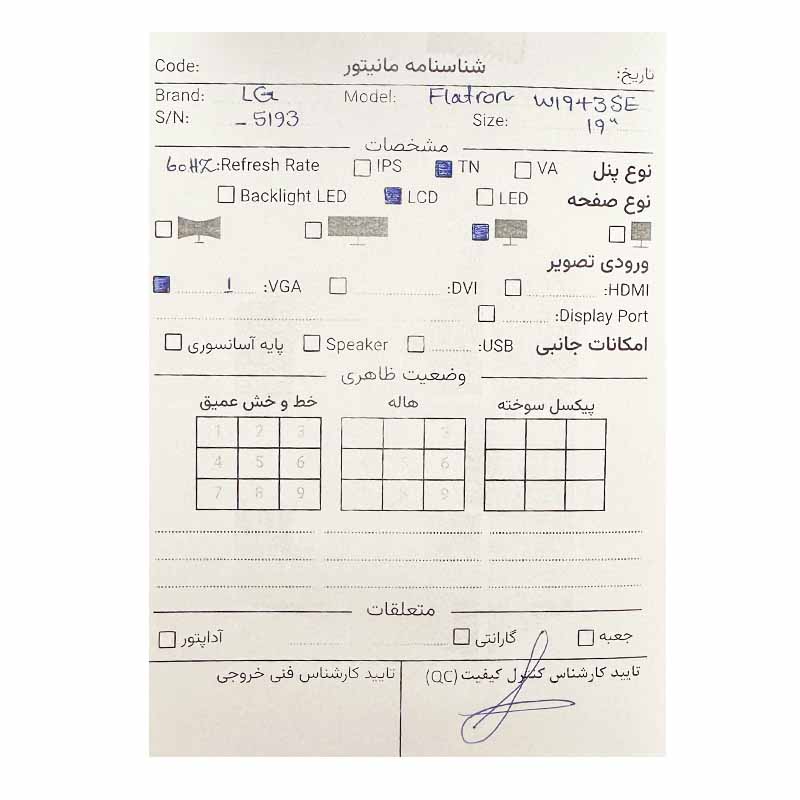 Code: شناسنامه مانیتور تاریخ:
Brand: LG Model: Flatron W1943SE
S/N: _ 5193 Size: 19"
مشخصات
نوع پنل VA TN IPS Refresh Rate: 60HZ
نوع صفحه LED LCD Backlight LED
ورودی تصویر
HDMI: DVI: VGA: 1
Display Port:
امکانات جانبی USB: Speaker پایه آسانسوری
وضعیت ظاهری
پیکسل سوخته هاله خط و خش عمیق
3 1 2 3
4 5 6 4 5 6
8 9 7 8 9
متعلقات
جعبه گارانتی آداپتور
تایید کارشناس کنترل کیفیت (QC) تایید کارشناس فنی خروجی